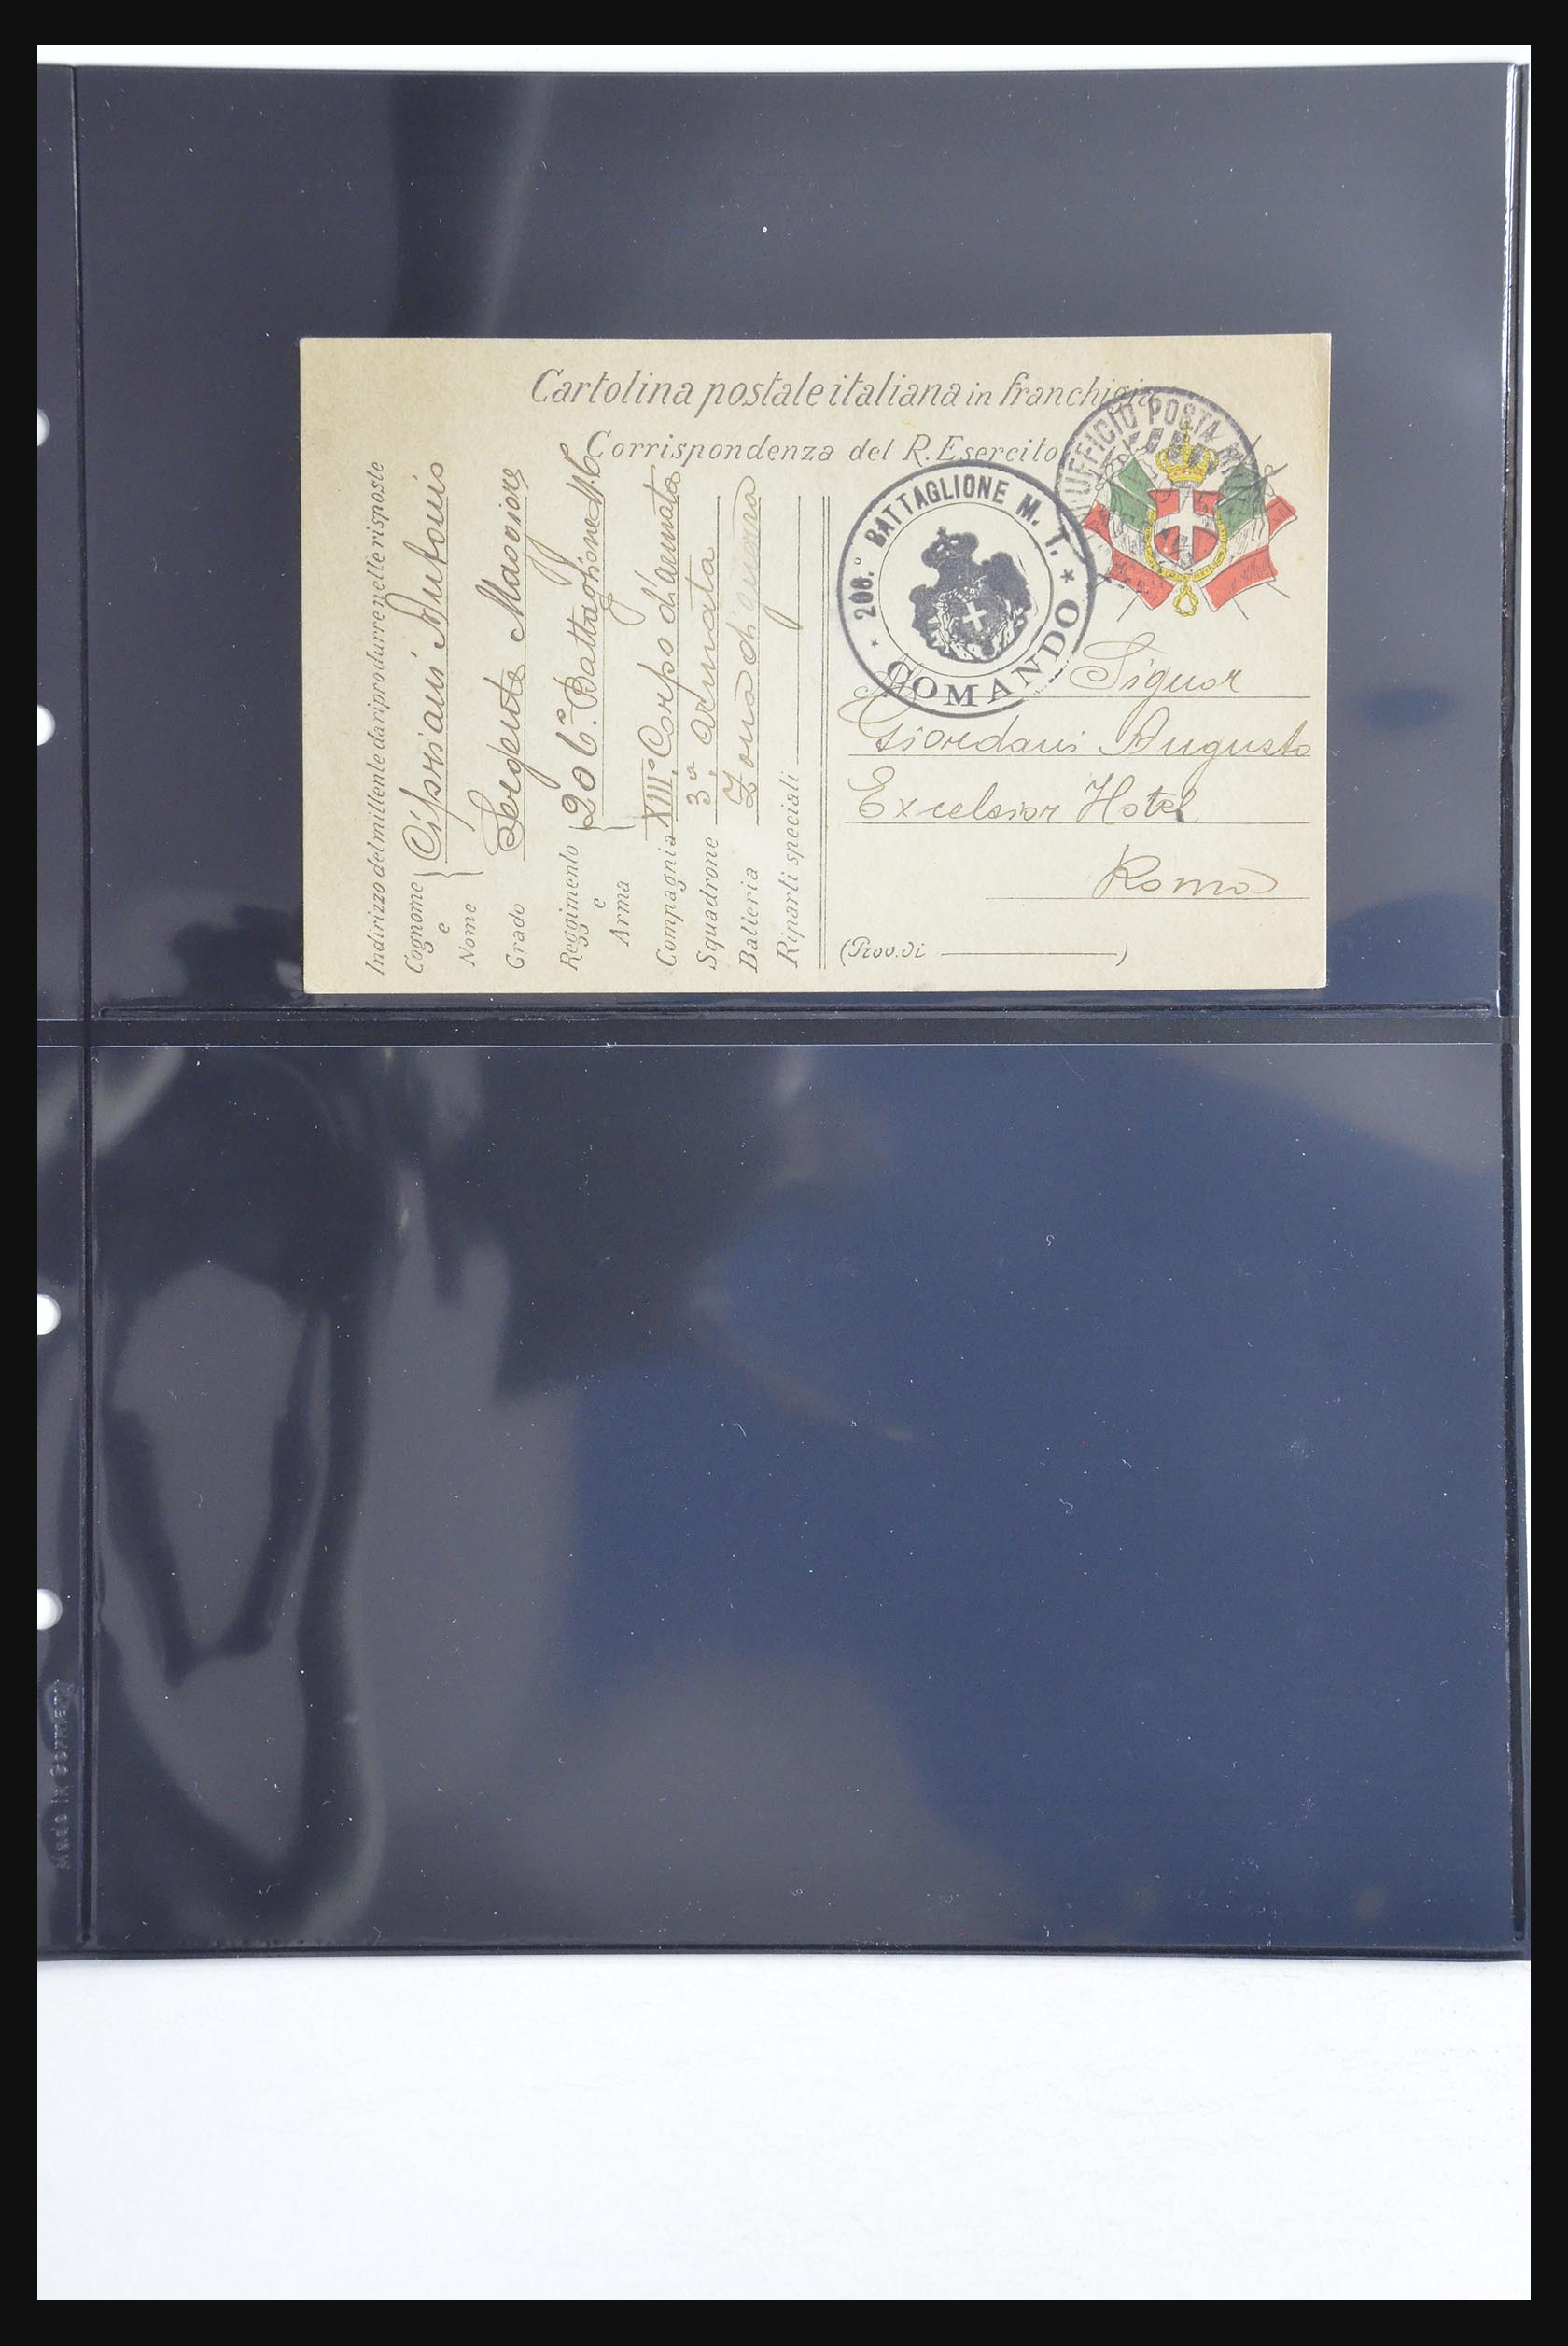 Cartolina postale italiana in franchigia
Corrispondenza del R. Esercito
UFFICIO POSTA MILIT
206.° BATTAGLIONE M. T.
COMANDO
Indirizzo del mittente da riprodurre nelle risposte
Cognome e Nome Cipriani Antonio
Grado Sergente Maggiore
Reggimento e Arma 206°. Battaglione M.T.
Compagnia XIII° Corpo d'armata
Squadrone 3ª armata
Batteria Zona di guerra
Riparti speciali
Al Signor
Giordani Augusto
Excelsior Hotel
Roma
(Prov. di )
Made in Germany